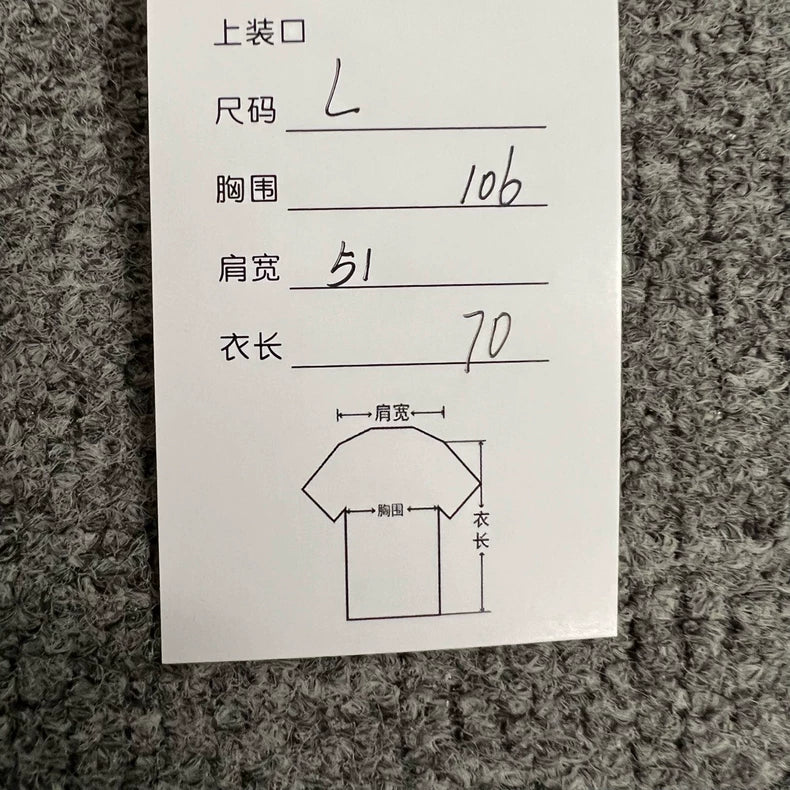 上装口
尺码 L
胸围 106
肩宽 51
衣长 70
肩宽
胸围
衣长